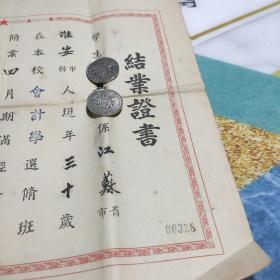 結業證書
學生
係江蘇省市
淮安市縣人現年三十歲
在本校會計學選脩班
脩業四月期滿經
00328